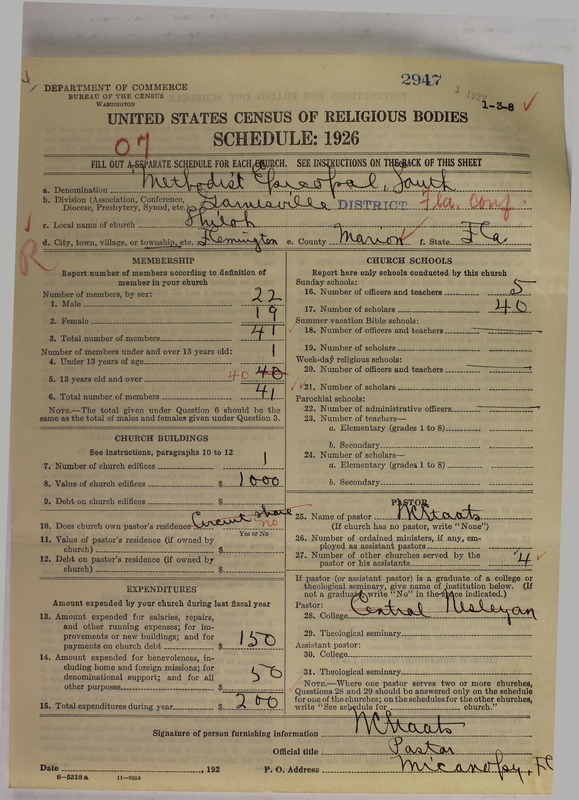 2947
1-3-8
DEPARTMENT OF COMMERCE
BUREAU OF THE CENSUS
WASHINGTON
UNITED STATES CENSUS OF RELIGIOUS BODIES
SCHEDULE: 1926
07
FILL OUT A SEPARATE SCHEDULE FOR EACH CHURCH. SEE INSTRUCTIONS ON THE BACK OF THIS SHEET
a. Denomination Methodist Episcopal, South
b. Division (Association, Conference, Diocese, Presbytery, Synod, etc.) Gainesville DISTRICT Fla. Conf.
c. Local name of church Shiloh
d. City, town, village, or township, etc. Flemington e. County Marion f. State Fla.
R
MEMBERSHIP
Report number of members according to definition of
member in your church
Number of members, by sex:
1. Male 22
2. Female 19
3. Total number of members 41
Number of members under and over 13 years old:
4. Under 13 years of age 1
5. 13 years old and over 40 40
6. Total number of members 41
NOTE.—The total given under Question 6 should be the
same as the total of males and females given under Question 3.
CHURCH BUILDINGS
See instructions, paragraphs 10 to 12
7. Number of church edifices 1
8. Value of church edifices $ 1000
9. Debt on church edifices $
10. Does church own pastor's residence? Circuit share no
Yes or No
11. Value of pastor's residence (if owned by
church) $
12. Debt on pastor's residence (if owned by
church) $
EXPENDITURES
Amount expended by your church during last fiscal year
13. Amount expended for salaries, repairs,
and other running expenses; for im-
provements or new buildings; and for
payments on church debt $ 150
14. Amount expended for benevolences, in-
cluding home and foreign missions; for
denominational support; and for all
other purposes $ 50
15. Total expenditures during year $ 200
CHURCH SCHOOLS
Report here only schools conducted by this church
Sunday schools:
16. Number of officers and teachers 5
17. Number of scholars 40
Summer vacation Bible schools:
18. Number of officers and teachers
19. Number of scholars
Week-day religious schools:
20. Number of officers and teachers
21. Number of scholars
Parochial schools:
22. Number of administrative officers
23. Number of teachers—
a. Elementary (grades 1 to 8)
b. Secondary
24. Number of scholars—
a. Elementary (grades 1 to 8)
b. Secondary
PASTOR
25. Name of pastor
(If church has no pastor, write "None")
26. Number of ordained ministers, if any, em-
ployed as assistant pastors
27. Number of other churches served by the
pastor or his assistants 4
If pastor (or assistant pastor) is a graduate of a college or
theological seminary, give name of institution below. (If
not a graduate, write "No" in the space indicated.)
Pastor:
28. College Central Wesleyan
29. Theological seminary
Assistant pastor:
30. College
31. Theological seminary
NOTE.—Where one pastor serves two or more churches,
Questions 28 and 29 should be answered only on the schedule
for one of the churches; on the schedules for the other churches,
write "See schedule for church."
Signature of person furnishing information
Official title Pastor
Date , 192 P. O. Address Micanopy, Fl